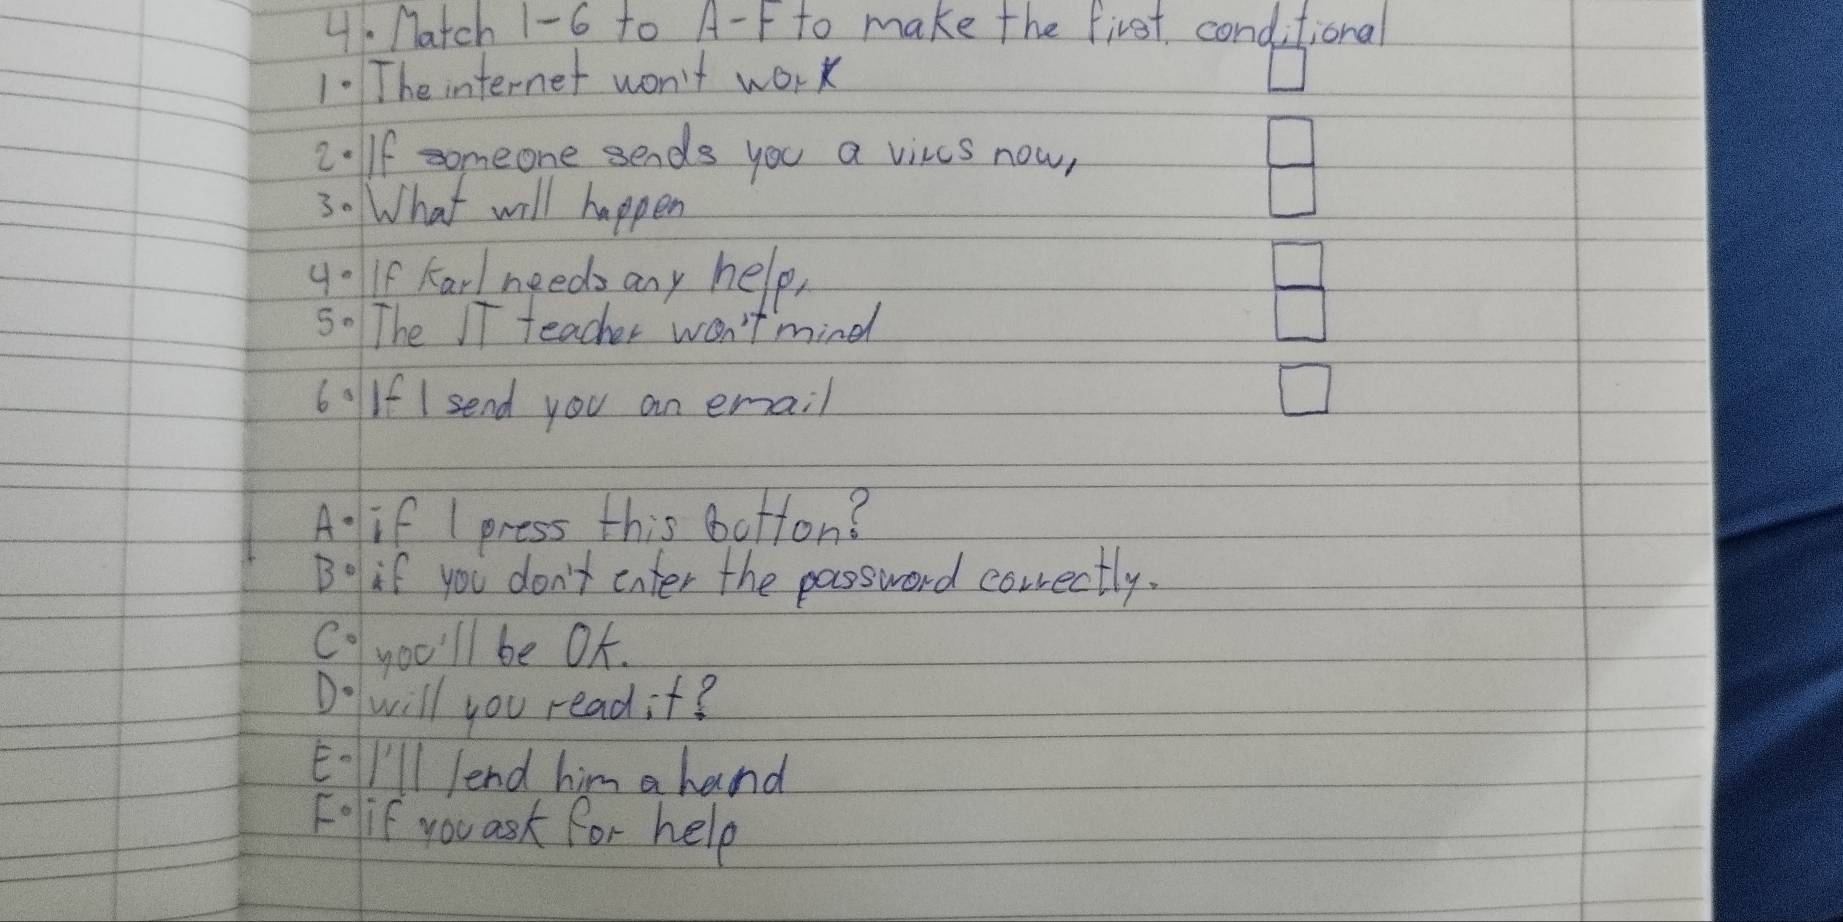 4. Match 1-6 to A-F to make the first conditional
1. The internet won't work
2. If someone sends you a virus now,
3. What will happen
4. If Karl needs any help,
5. The IT teacher won't mind
6. If I send you an email
A. if I press this button?
B. if you don't enter the password correctly.
C. you'll be OK.
D. will you read it?
E. I'll lend him a hand
F. if you ask for help